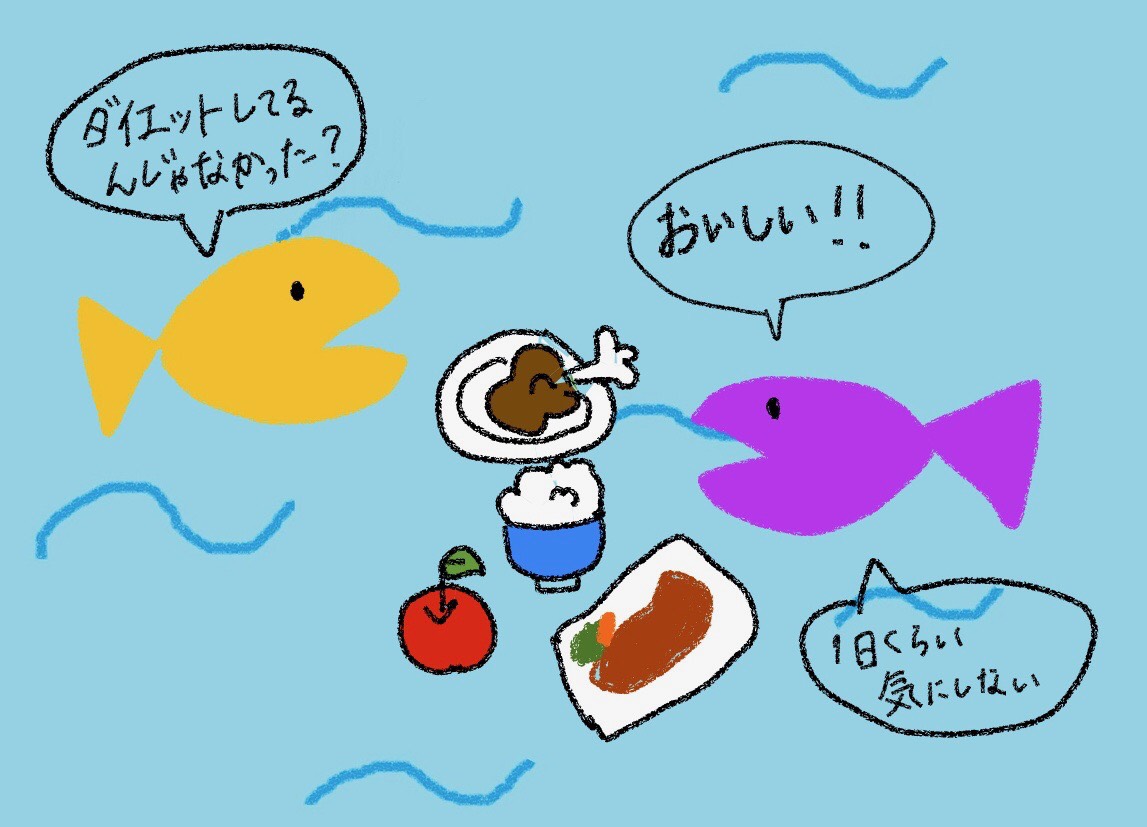 ダイエットしてる
んじゃなかった？
おいしい！！
1日くらい
気にしない